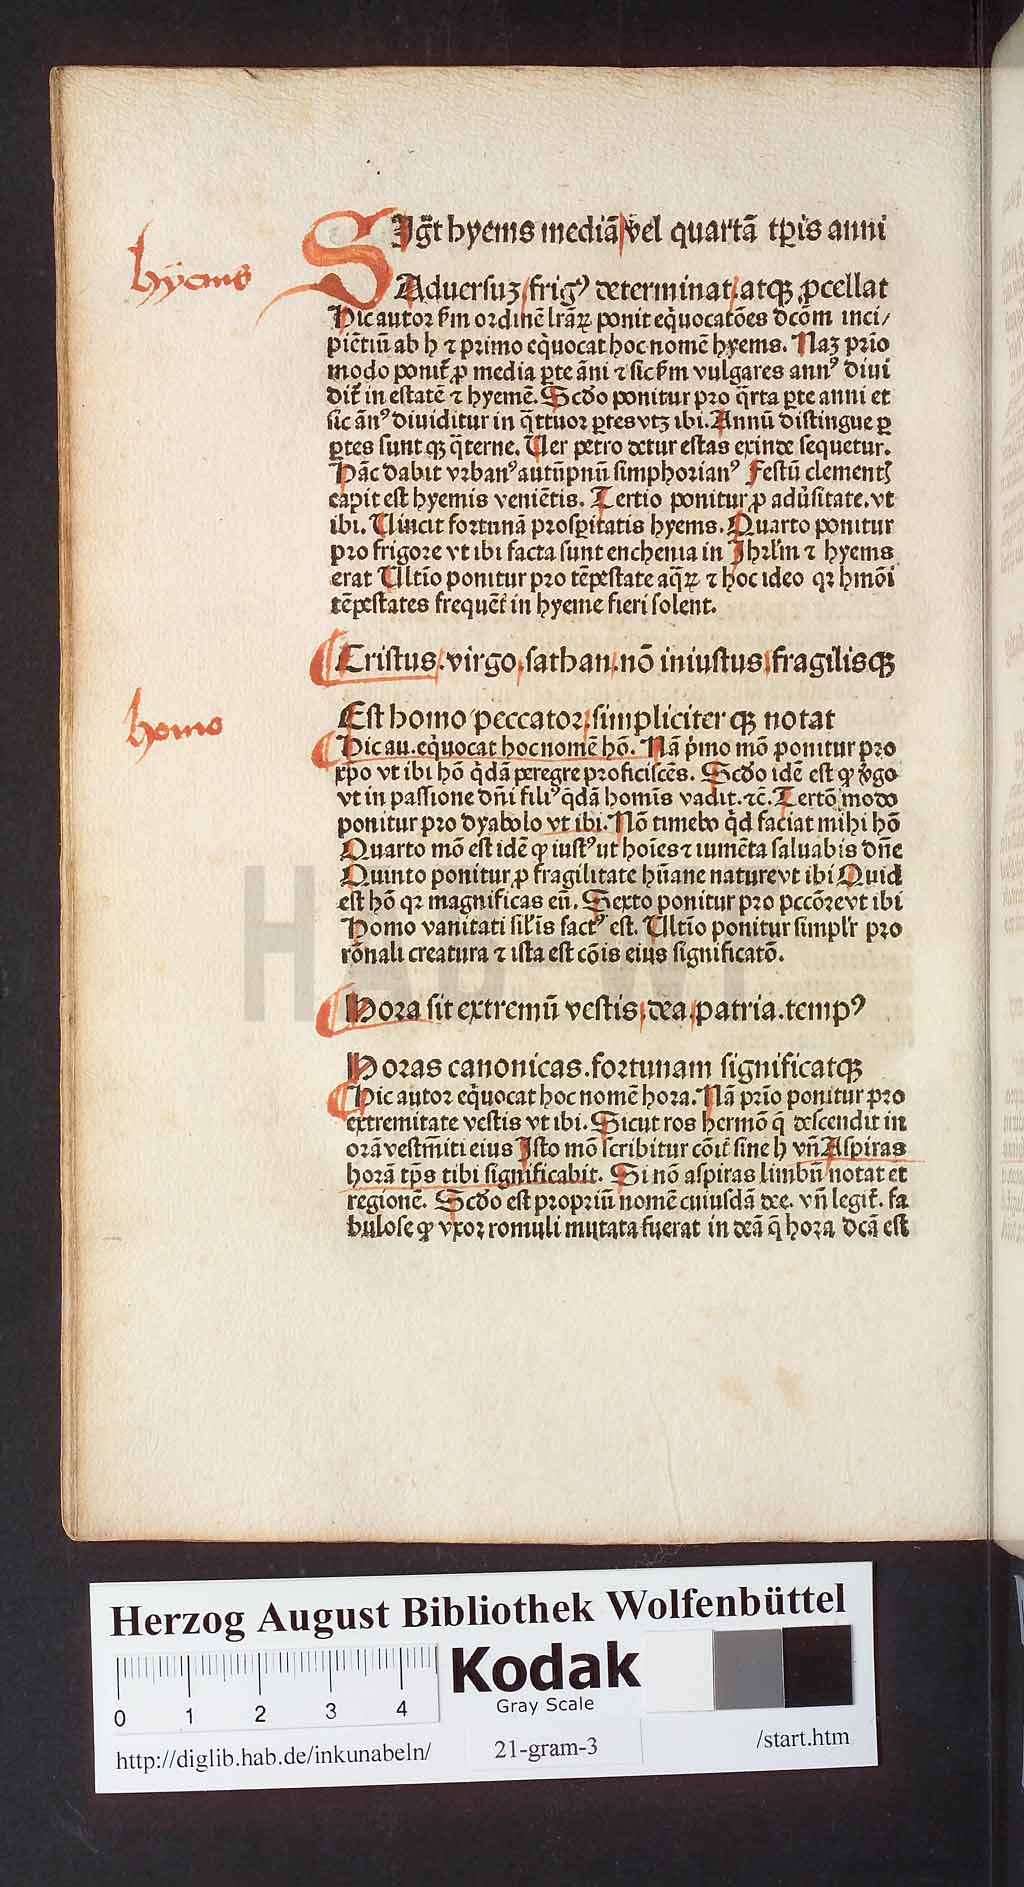 hÿems
SIgt̄ hyems mediā vel quartā tꝑis anni
Aduersuʒ frigꝰ determinat. atqꝫ ꝓcellat
Hic autor ẜm ordinē lrāꝝ ponit eq̇uocatōes dcōm inci/
piētiū ab h ⁊ primo eq̇uocat hoc nomē hyems. Naʒ prīo
modo ponit̄ ꝓ media ꝑte āni ⁊ sic ẜm vulgares annꝰ diui
dit̄ in estatē ⁊ hyemē. Scd̄o ponitur pro q̄rta ꝑte anni et
sic ānꝰ diuiditur in q̄ttuor ꝑtes vtʒ ibi. Annū distingue ꝑ
ꝑtes sunt qꝫ q̄terne. Uer petro detur estas exinde sequetur.
Hāc dabit vrbanꝰ autūpnū simphorianꝰ Festū clementꝭ
capit est hyemis veniētis. Tertio ponitur ꝓ adu̇sitate. vt
ibi. Uincit fortunā prosꝑitatis hyems. Quarto ponitur
pro frigore vt ibi facta sunt enchenia in Jhrlm̄ ⁊ hyems
erat Ultīo ponitur pro tēpestate aq̄ꝝ ⁊ hoc ideo qꝛ hmōi
tēpestates frequēt̄ in hyeme fieri solent.
homo
Cristus. virgo. sathan. nō iniustus. fragilisqꝫ
Est homo peccator. simpliciter qꝫ notat
Hic au. eq̇uocat hoc nomē hō. Nā pi̇mo mō ponitur pro
xpo vt ibi hō q̇dā peregre proficiscēs. Scd̄o idē est ꝙ v̇go
vt in passione dn̄i filiꝰ q̇dā homīs vadit. ⁊c̄. Tertō modo
ponitur pro dyabolo vt ibi. Nō timebo q̇d faciat mihi hō
Quarto mō est idē ꝙ iustꝰ ut hoīes ⁊ iumēta saluabis dn̄e
Quinto ponitur ꝓ fragilitate hūane nature vt ibi Quid
est hō qꝛ magnificas eū. Sexto ponitur pro pccōre vt ibi
Homo vanitati sil̄is factꝰ est. Ultīo ponitur simplr̄ pro
rōnali creatura ⁊ ista est cōis eius significatō.
Hora sit extremū vestis. dea. patria. tempꝰ
Horas canonicas. fortunam significatqꝫ
Hic autor eq̇uocat hoc nomē hora. Nā prīo ponitur pro
extremitate vestis vt ibi. Sicut ros hermō q̄ descendit in
orā vestm̄iti eius Isto mō scribitur cōit̄ sine h vn̄ Aspiras
horā tp̄s tibi significabit. Si nō aspiras limbū notat et
regionē. Scd̄o est propriū nomē cuiusdā dee. vn̄ legit̄. fa
bulose ꝙ vxor romuli mutata fuerat in deā q̄ hora dcā est
HAB-WF
Herzog August Bibliothek Wolfenbüttel
0 1 2 3 4
Kodak
Gray Scale
http://diglib.hab.de/inkunabeln/
21-gram-3
/start.htm